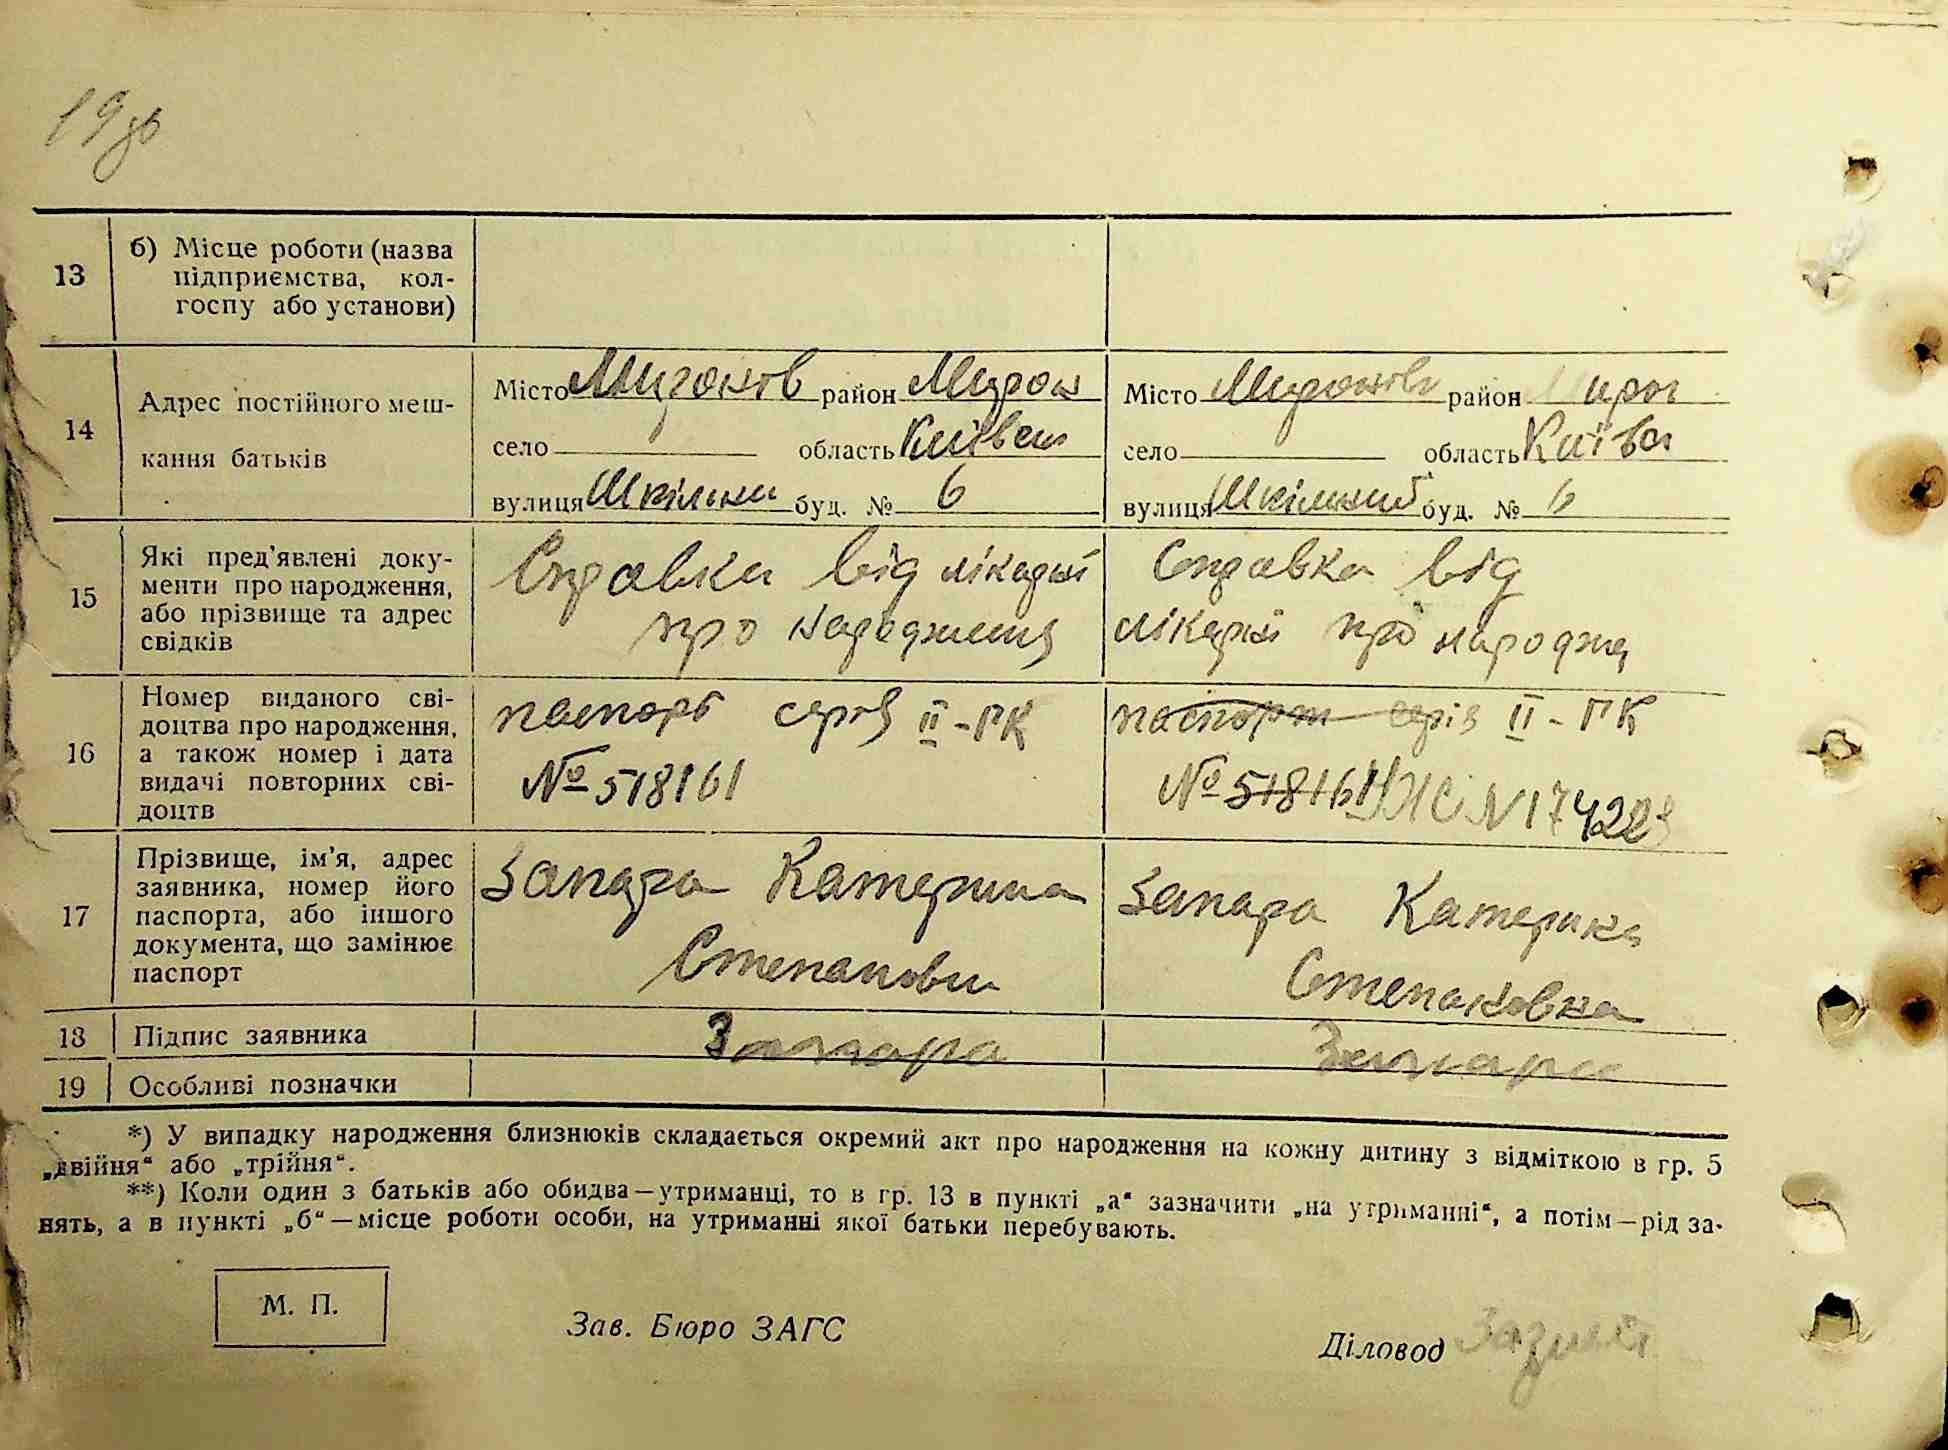 19 зв
13
б) Місце роботи (назва
підприємства, кол-
госпу або установи)
14
Адрес постійного меш-
кання батьків
Місто Миронов район Мирон
село область Київськ
вулиця Шкільни буд. № 6
Місто Миронов район Мирон
село область Київсь
вулиця Шкільний буд. № 6
15
Які пред'явлені доку-
менти про народження,
або прізвище та адрес
свідків
Справка від лікарні
про народження
Справка від
лікарні про народже
16
Номер виданого сві-
доцтва про народження,
а також номер і дата
видачі повторних сві-
доцтв
паспорт серія II-ПК
№ 518161
паспорт серія II-ПК
№ 518161 N 174223
17
Прізвище, ім'я, адрес
заявника, номер його
паспорта, або іншого
документа, що замінює
паспорт
Запара Катерина
Степановн
Запара Катерина
Степановна
18
Підпис заявника
Запара
Запара
19
Особливі позначки
*) У випадку народження близнюків складається окремий акт про народження на кожну дитину з відміткою в гр. 5
„двійня“ або „трійня“.
**) Коли один з батьків або обидва—утриманці, то в гр. 13 в пункті „а“ зазначити „на утриманні“, а потім—рід за-
нять, а в пункті „б“—місце роботи особи, на утриманні якої батьки перебувають.
М. П.
Зав. Бюро ЗАГС
Діловод